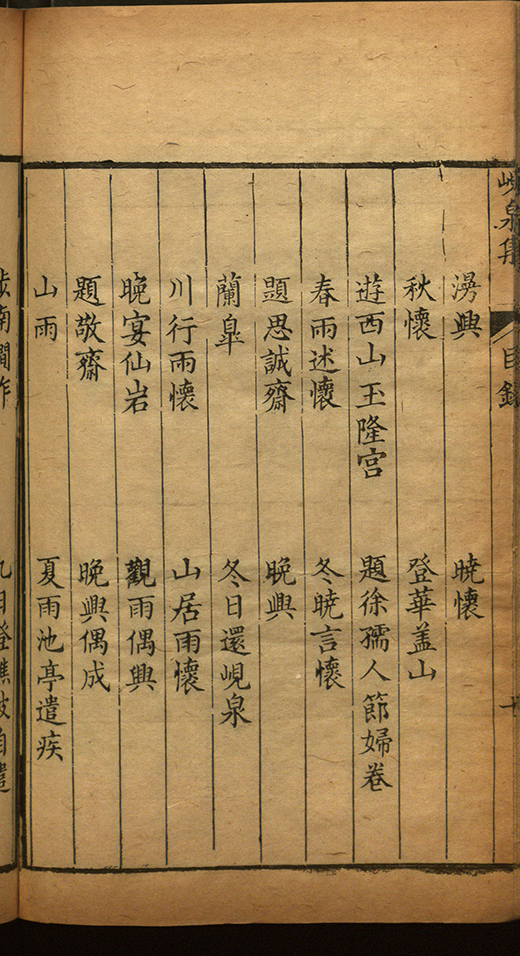 峴泉集
目錄
漫興 曉懷
秋懷 登華盖山
遊西山玉隆宮 題徐孺人節婦卷
春雨述懷 冬曉言懷
題思誠齋 晚興
蘭皐 冬日還峴泉
川行雨懷 山居雨懷
晚宴仙岩 觀雨偶興
題敬齋 晚興偶成
山雨 夏雨池亭遣疾